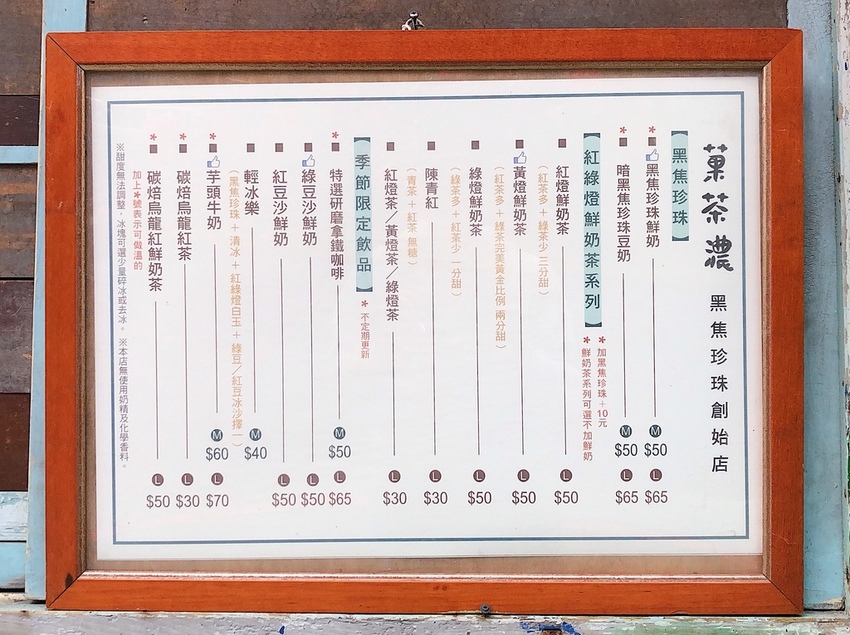 菓茶濃 黑焦珍珠創始店
【黑焦珍珠】
*■ 黑焦珍珠鮮奶 M $50 L $65
*■ 暗黑焦珍珠豆奶 M $50 L $65
【紅綠燈鮮奶茶系列】
*加黑焦珍珠+10元
*鮮奶茶系列可選不加鮮奶
■ 紅燈鮮奶茶 L $50
(紅茶多+綠茶少 三分甜)
■ 黃燈鮮奶茶 L $50
(紅茶多+綠茶完美黃金比例 兩分甜)
■ 綠燈鮮奶茶 L $50
(綠茶多+紅茶少 一分甜)
■ 陳青紅 L $30
(青茶+紅茶 無糖)
■ 紅燈茶/黃燈茶/綠燈茶 L $30
【季節限定飲品】*不定期更新
*■ 特選研磨拿鐵咖啡 M $50 L $65
■ 綠豆沙鮮奶 L $50
■ 紅豆沙鮮奶 L $50
■ 輕冰樂 M $40
(黑焦珍珠+清冰+紅綠燈白玉+綠豆/紅豆冰沙擇一)
*■ 芋頭牛奶 M $60 L $70
*■ 碳焙烏龍紅茶 L $30
*■ 碳焙烏龍紅鮮奶茶 L $50
加上*號表示可做溫的
※甜度無法調整,冰塊可選少量碎冰或去冰。 ※本店無使用奶精及化學香料。